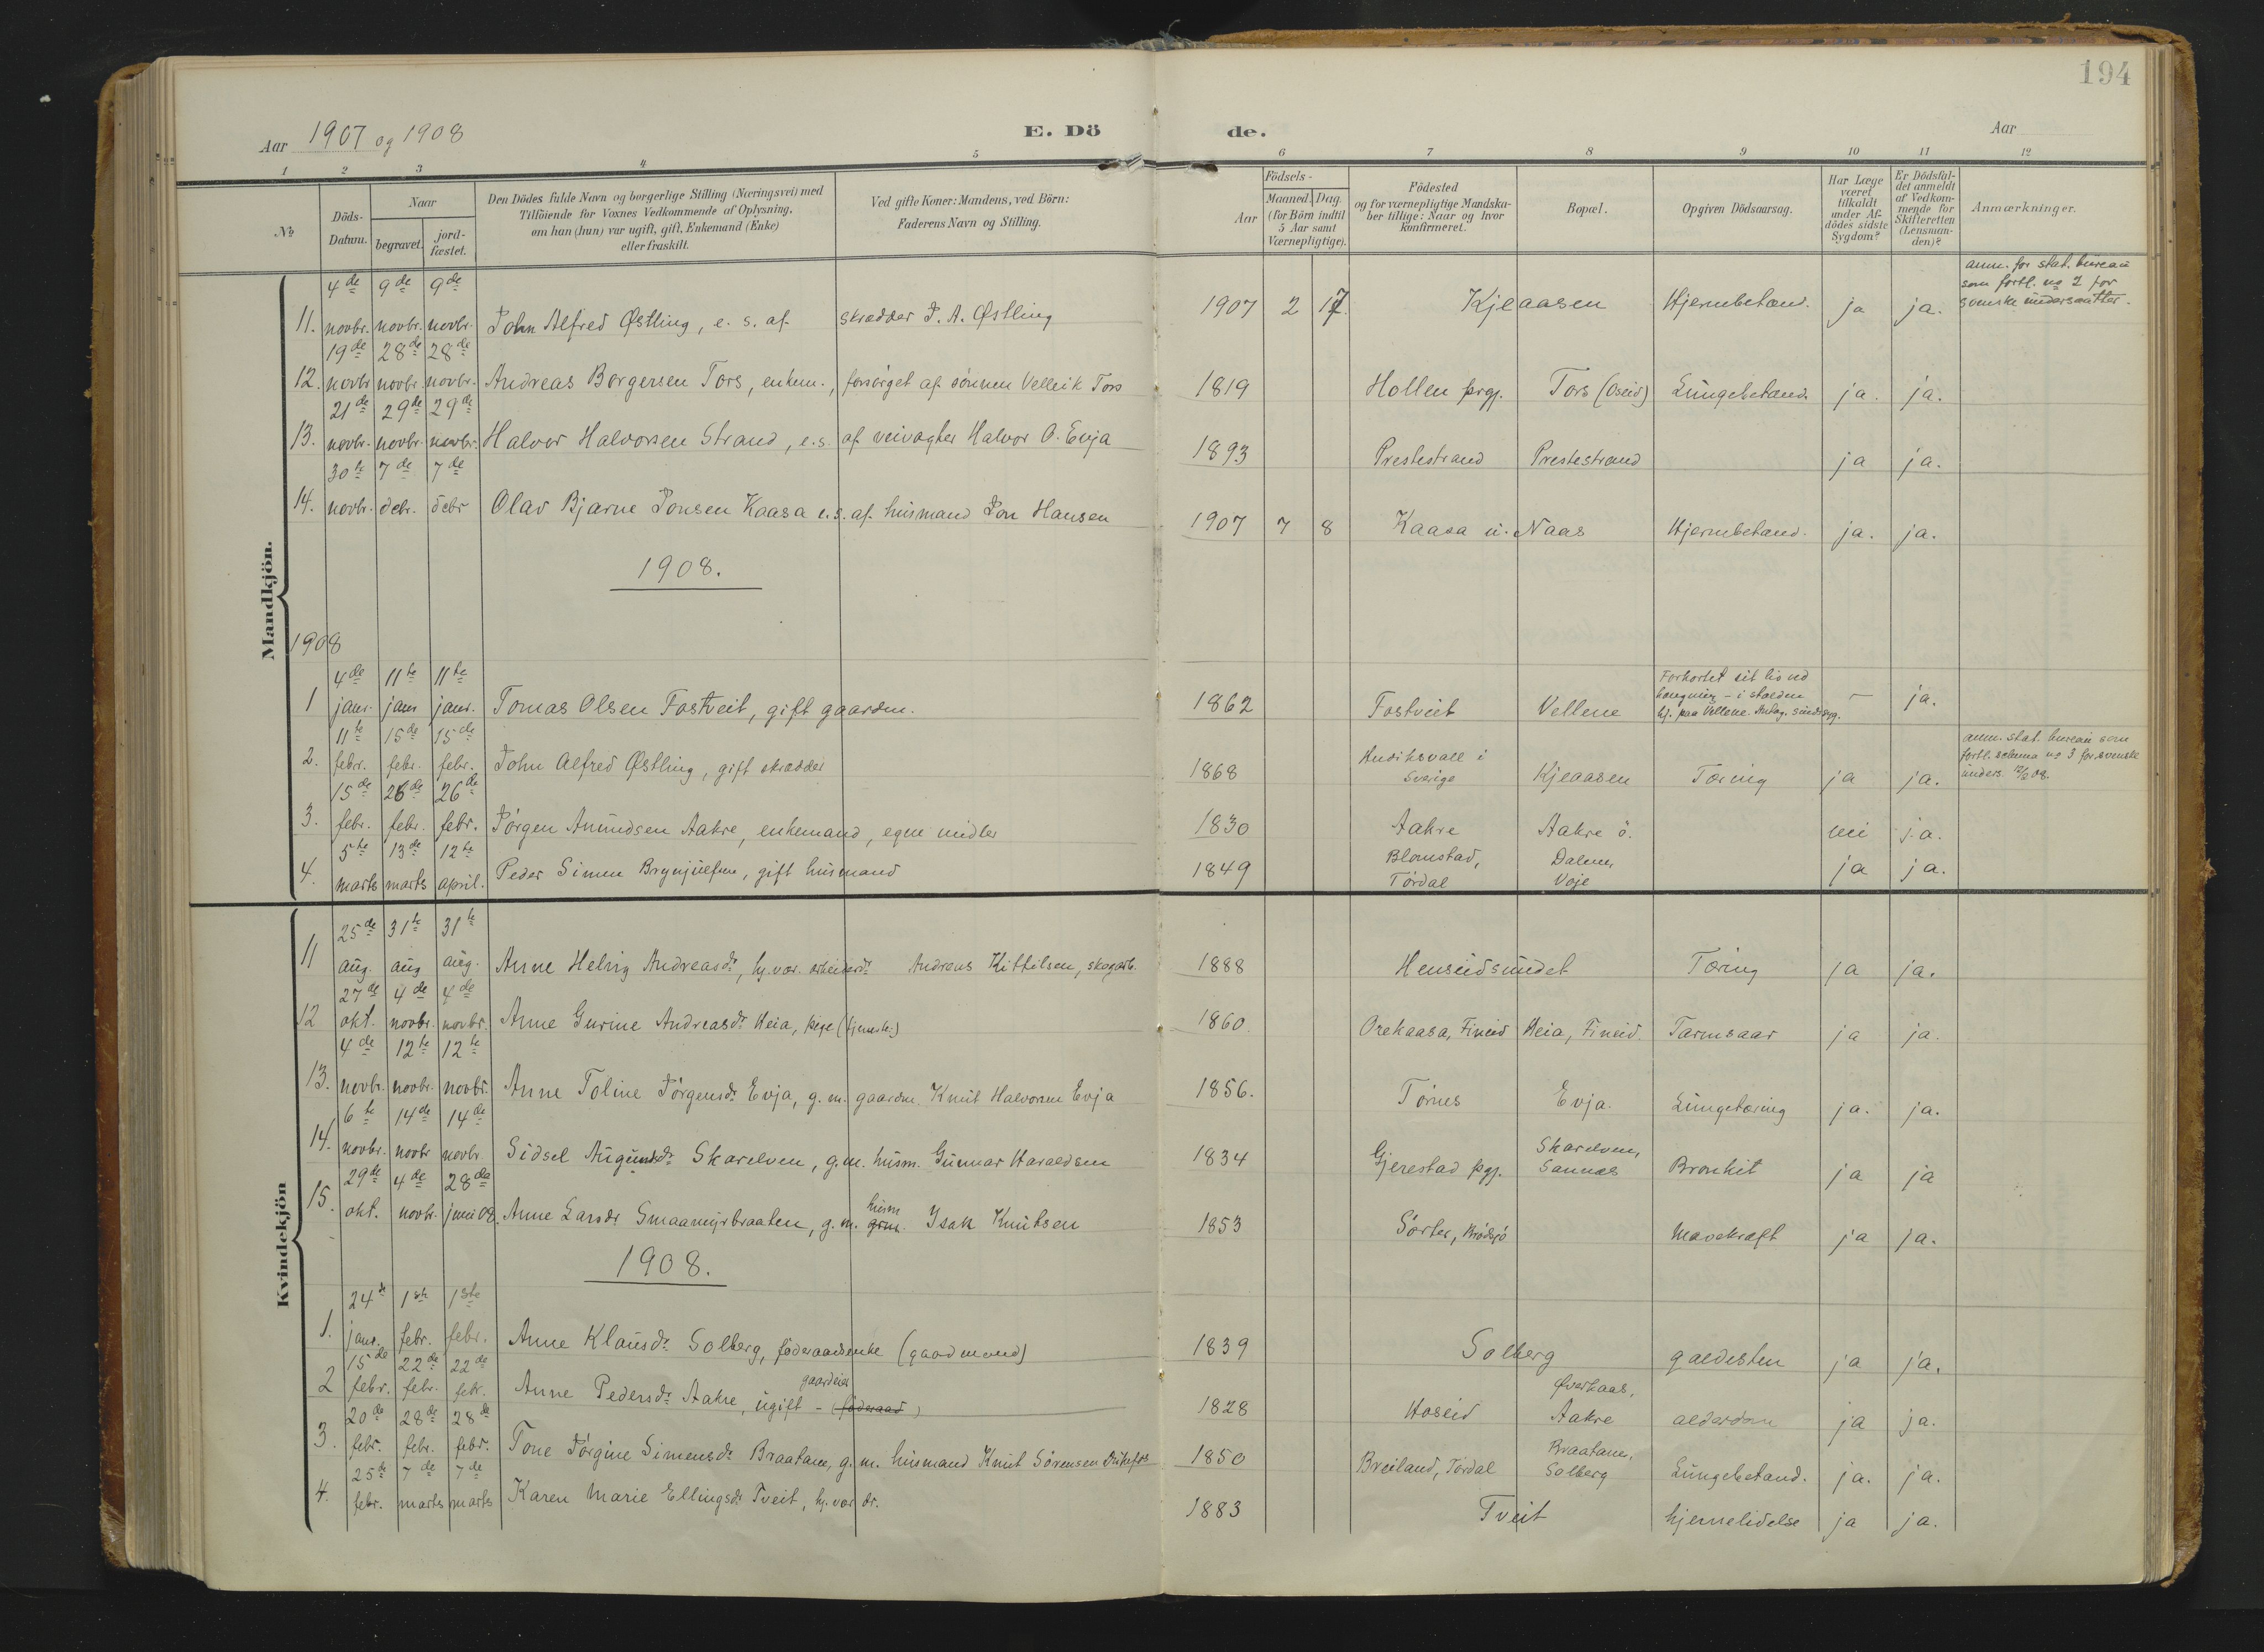 194
Aar 1907 og 1908 E. Dö de. Aar
1 2 3 4 5 6 7 8 9 10 11 12
№ Döds-Datum. Naar begravet. jord-fæstet. Den Dödes fulde Navn og borgerlige Stilling (Næringsvei) med Tilföiende for Voxnes Vedkommende af Oplysning, om han (hun) var ugift, gift, Enkemand (Enke) eller fraskilt. Ved gifte Koner: Mandens, ved Börn: Faderens Navn og Stilling. Födsels- Aar Maaned. Dag. (for Börn indtil 5 Aar samt Værnepligtige). Födested og for værnepligtige Mandskaber tillige: Naar og hvor konfirmeret. Bopæl. Opgiven Dödsaarsag. Har Læge været tilkaldt under Afdödes sidste Sygdom? Er Dödsfaldet anmeldt af Vedkommende for Skifteretten (Lensmanden)? Anmærkninger.
Mandkjön.
11. 4de novbr. 9de novbr. 9de novbr. John Alfred Østling, e. s. af skrædder J. A. Østling 1907 2 17. Kjeaasen Hjernebetænd. ja ja. anm. for stat. bureau som fortl. no 2 for svenske undersaatter.
12. 19de novbr 28de novbr. 28de novbr. Andreas Borgersen Tors, enkem., forsörget af sönnen Velleik Tors 1819 Hollen prgj. Tors (Oseid) Lungebetænd. ja. ja.
13. 21de novbr. 29de novbr. 29de novbr. Halvor Halvorsen Strand, e.s. af veivogter Halvor O. Evja 1893 Prestestrand Prestestrand ja ja.
14. 30te novbr. 7de debr. 7de debr Olav Bjarne Jonsen Kaasa e.s. af husmand Jon Hansen 1907 7 8 Kaasa u. Naas Hjernebetænd. ja. ja.
1908.
1908
1 4de janr. 11te janr 11te janr. Tomas Olsen Fostveit, gift gaardm. 1862 Fostveit Vellene Forkortet sit liv ved hængning - i stalden hj. paa Vellene. Antag. sindssyg. - ja.
2. 11te febr. 15de febr. 15de febr. John Alfred Østling, gift skrædder 1868 Hudiksvall i Sverige Kjeaasen Tæring ja ja. anm. stat. bureau som fortl. schema no 3 for svenske unders. 08.
3. 15de febr. 26de febr. 26de febr. Jörgen Amundsen Aakre, enkemand, egne midler 1830 Aakre Aakre ö. nei ja.
4. 5te marts 13de marts 12te april. Peder Simen Brynjulfsen, gift husmand 1849 Blomstad, Tördal Dalene, Voje ja ja.
Kvindekjön
11 25de aug. 31te aug 31te aug. Anne Helvig Andreasdr, hj.vær. arbeiderdr Andreas Kittilsen, skogarb. 1888 Henseidsundet Tæring ja ja.
12 27de okt. 4de novbr. 4de novbr. Anne Gurine Andreasdr Heia, pige (tjeneste.) 1860. Orekaasa, Fineid Heia, Fineid. Tarmsaar ja ja.
13. 4de novbr. 12te novbr. 12te novbr. Anne Toline Jörgensdr Evja, g. m. gaardm. Knut Halvorsen Evja 1856. Törnes Evja. Lungetæring ja. ja.
14. 6te novbr. 14de novbr 14de novbr. Sidsel Augundsdr Skarelven, g.m. husm. Gunnar Haraldsen 1834 Gjerestad pgj. Skarelven, Sannes Bronkit ja ja
15. 29de okt. 4de novbr. 28de juni 08. Anne Larsdr Smaamyrbraaten, g. m. husm Isak Knutsen 1853 Sörter, Brödsjö Mavekræft ja ja.
1908.
1. 24de janr. 1ste febr. 1ste febr. Anne Klausdr Solberg, föderaadsenke (gaardmand) 1839 Solberg galdesten ja ja.
2 15de febr. 22de febr. 22de febr. Anne Pedersdr Aakre, ugift - gaardeier (föderaad) 1828 Hoseid Øverhaas, Aakre alderdom ja ja.
3. 20de febr. 28de febr. 28de febr. Tone Jörgine Simensdr Braatane, g. m. husmand Knut Sörensen 1850 Breiland, Tördal Braatane, Solberg Lungebetænd. ja. ja.
4. 25de febr. 7de marts 7de marts Karen Marie Ellingsdr Tveit, hj. vær dr. 1883 Tveit hjernelidelse ja ja.